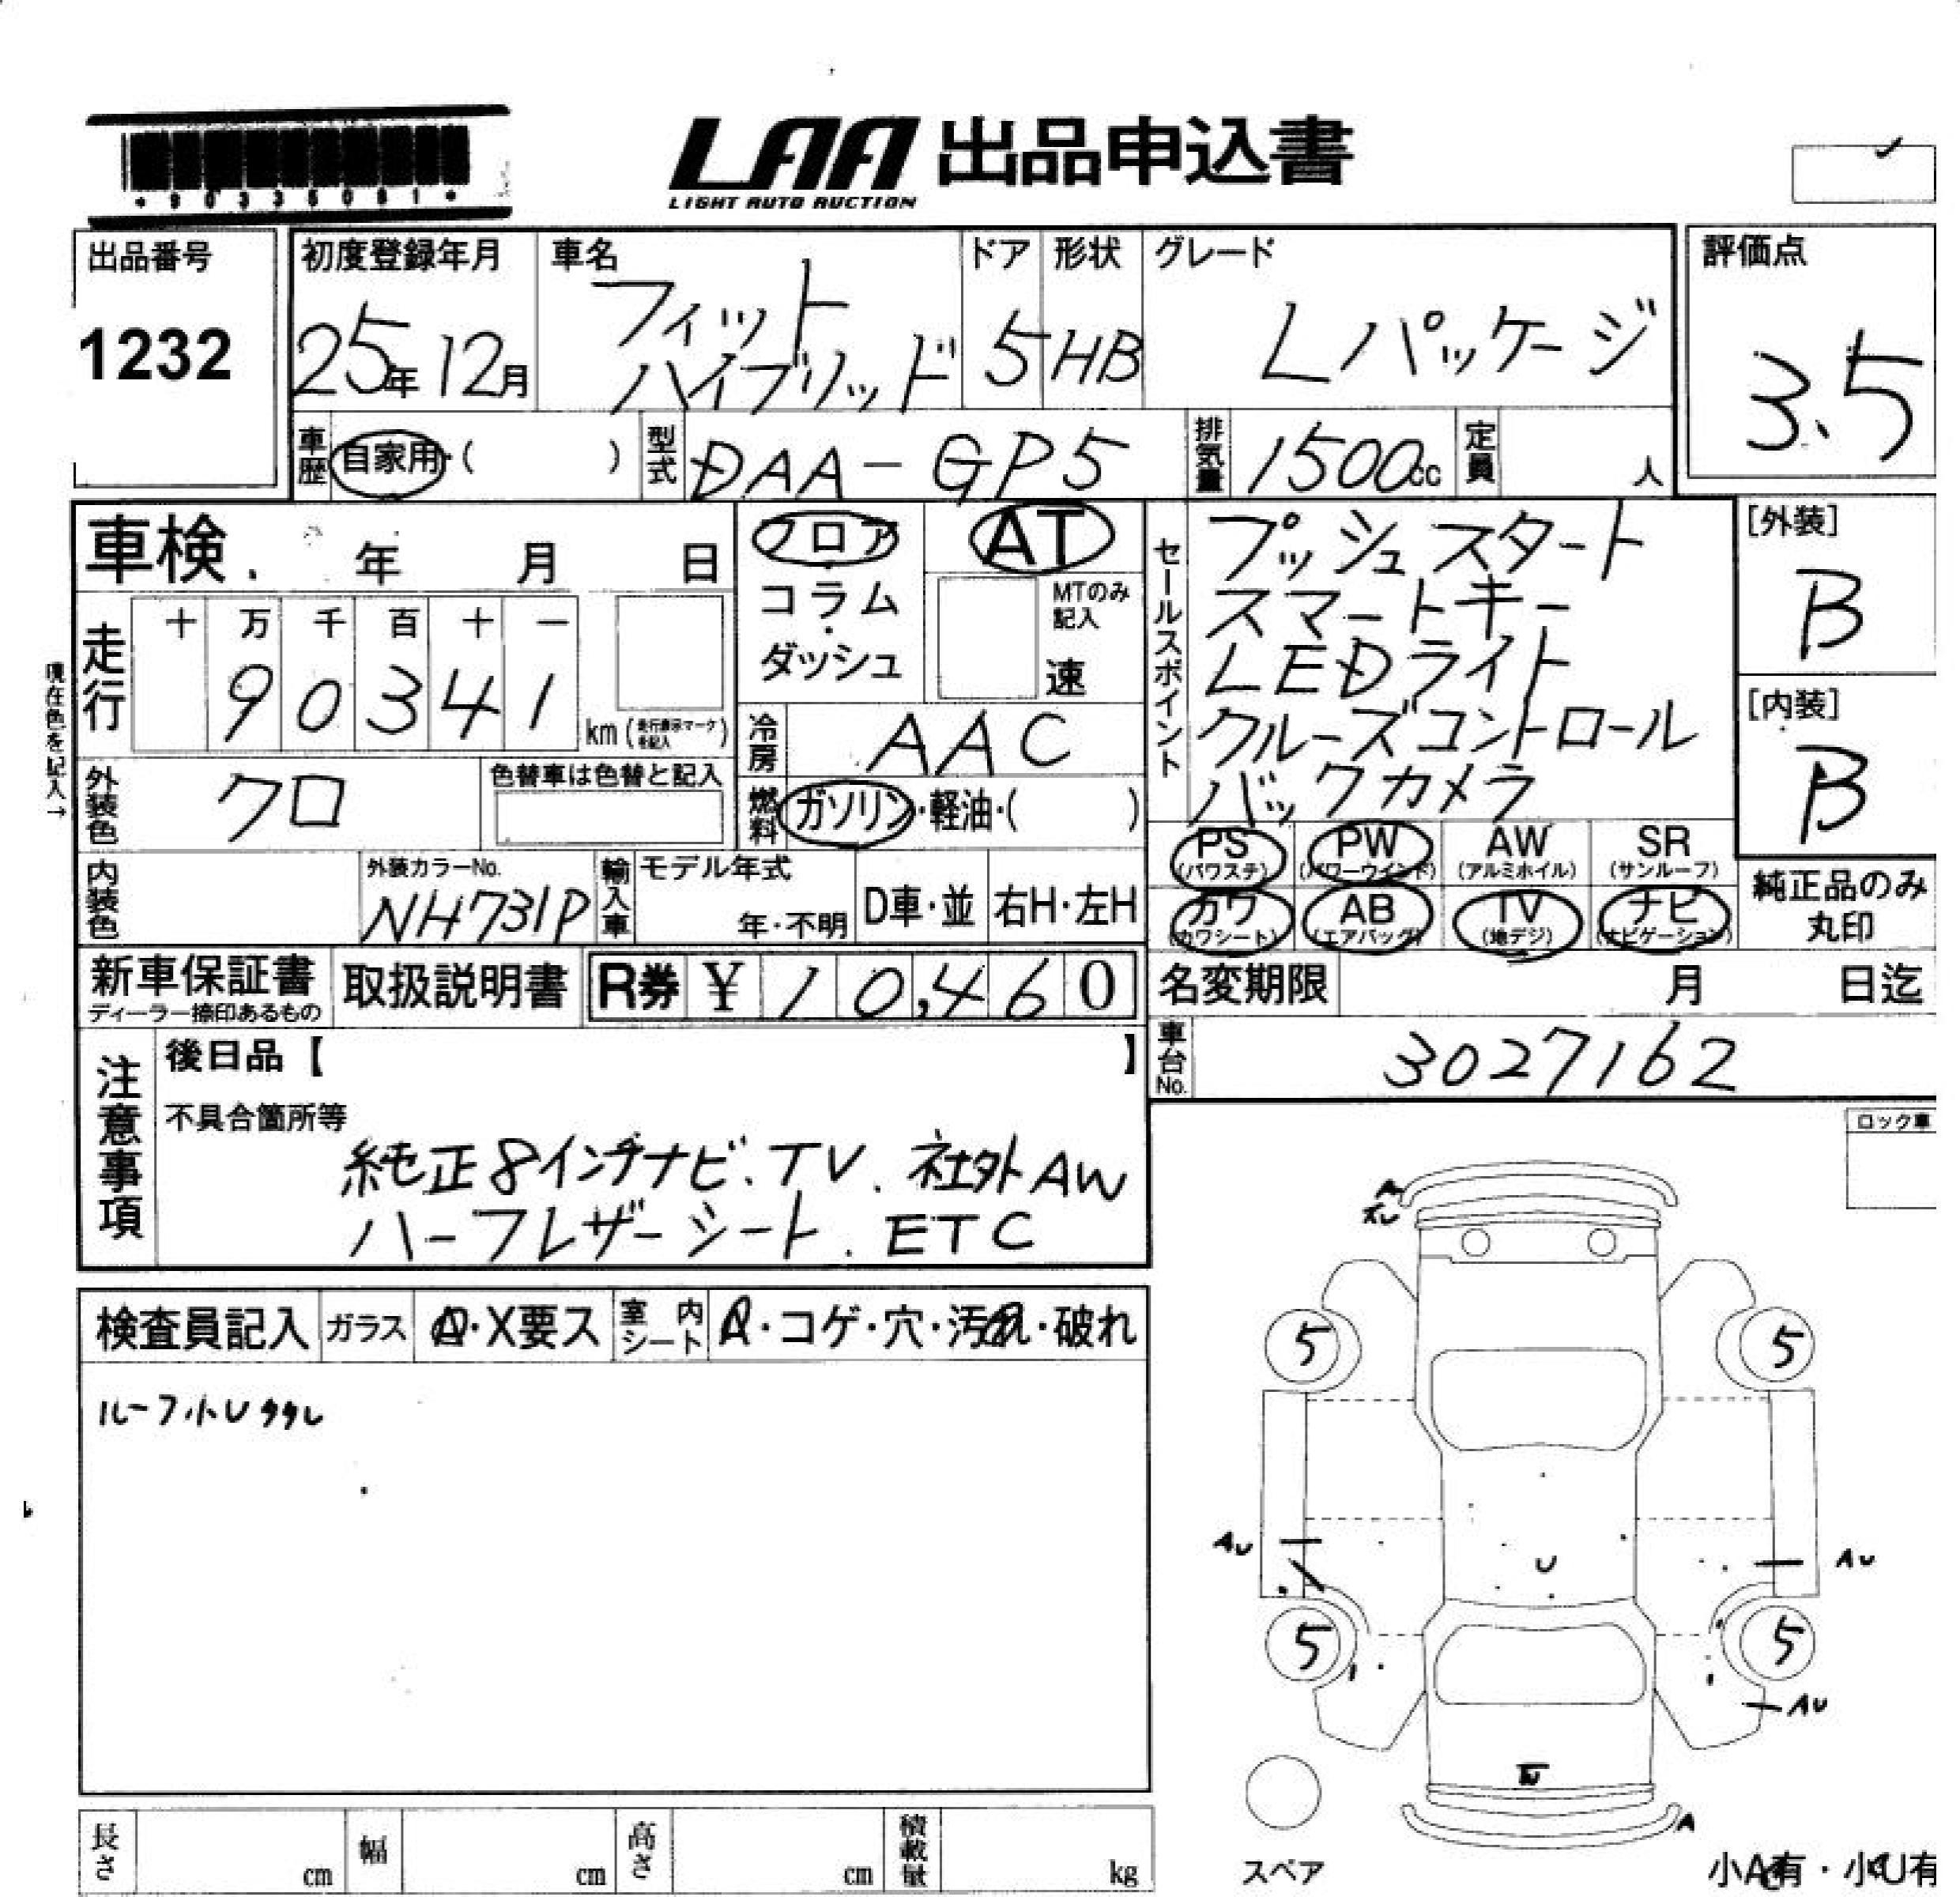 *90335081*
LAA 出品申込書
LIGHT AUTO AUCTION
出品番号
1232
初度登録年月
25年12月
車名
フィット
ハイブリッド
ドア
5
形状
HB
グレード
Lパッケージ
評価点
3.5
車歴 自家用・( )
型式 DAA-GP5
排気量 1500cc
定員 人
車検 年 月 日
フロア
・
コラム
・
ダッシュ
AT
MTのみ記入
速
セールスポイント
プッシュスタート
スマートキー
LEDライト
クルーズコントロール
バックカメラ
[外装]
B
[内装]
B
現在色を記入→
走行
十 万 千 百 十 一
9 0 3 4 1
km(走行表示マークを記入)
冷房 AAC
外装色 クロ
色替車は色替と記入
燃料 ガソリン・軽油・( )
PS (パワステ)
PW (パワーウインド)
AW (アルミホイル)
SR (サンルーフ)
カワ (カワシート)
AB (エアバッグ)
TV (地デジ)
ナビ (ナビゲーション)
純正品のみ
丸印
内装色
外装カラーNo.
NH731P
輸入車
モデル年式
年・不明
D車・並
右H・左H
新車保証書
ディーラー捺印あるもの
取扱説明書
R券 ¥ 10,460
名変期限 月 日迄
車台No. 3027162
注意事項
後日品【 】
不具合箇所等
純正8インチナビ、TV、社外AW
ハーフレザーシート、ETC
ロック車
検査員記入
ガラス A・X要ス
室内シート A・コゲ・穴・汚れ・破れ
ルーフ小U
A
5 5
AU
U
AU
5 5
AU
A
スペア
小A有・小U有
長さ cm
幅 cm
高さ cm
積載量 kg